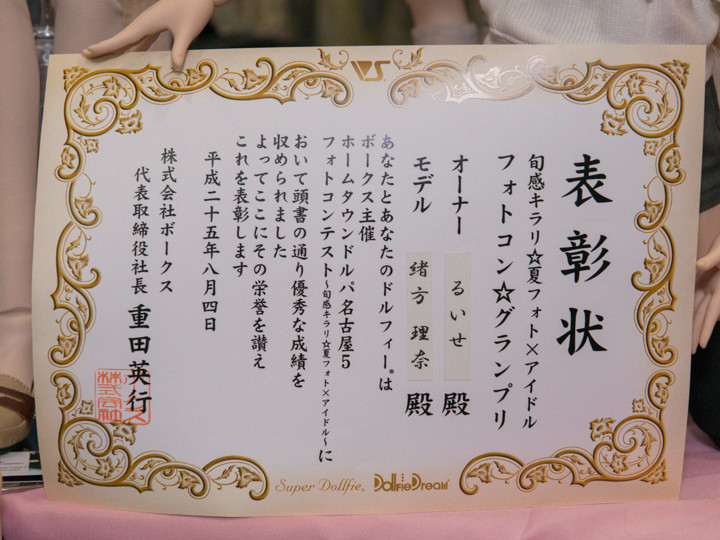 VS
表彰状
旬感キラリ☆夏フォト×アイドル
フォトコン☆グランプリ
オーナー るいせ 殿
モデル 緒方理奈 殿
あなたとあなたのドルフィー®は
ボークス主催
ホームタウンドルパ名古屋5
フォトコンテスト~旬感キラリ☆夏フォト×アイドル~に
おいて頭書の通り優秀な成績を
収められました
よってここにその栄誉を讃え
これを表彰します
平成二十五年八月四日
株式会社ボークス
代表取締役社長 重田英行
Super Dollfie®
DollfieDream®